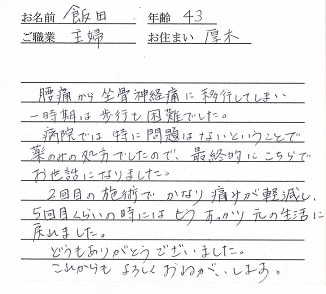 お名前 飯田 年齢 43
ご職業 主婦 お住まい 厚木
腰痛から坐骨神経痛に移行してしまい
一時期は歩行も困難でした。
病院では特に問題はないということで
薬のみの処方でしたので、最終的にこちらで
お世話になりました。
2回目の施術でかなり痛みが軽減し、
5回目くらいの時にはもうすっかり元の生活に
戻れました。
どうもありがとうございました。
これからもよろしくおねがいします。